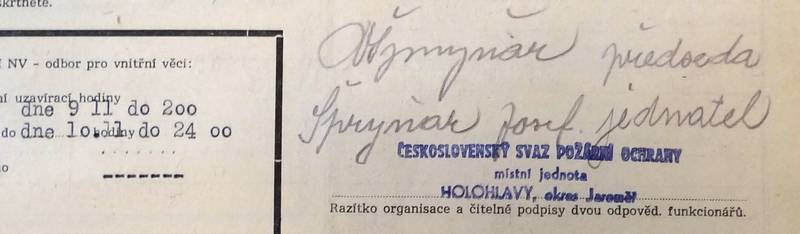 škrtněte.
NV - odbor pro vnitřní věci:
ní uzavírací hodiny
dne 9 11 do 2oo
do dne 1o.11 hodiny do 24 oo
předseda
Špryňar Josef. jednatel
ČESKOSLOVENSKÝ SVAZ POŽÁRNÍ OCHRANY
místní jednota
HOLOHLAVY, okres Jaroměř
Razítko organisace a čitelné podpisy dvou odpověd. funkcionářů.